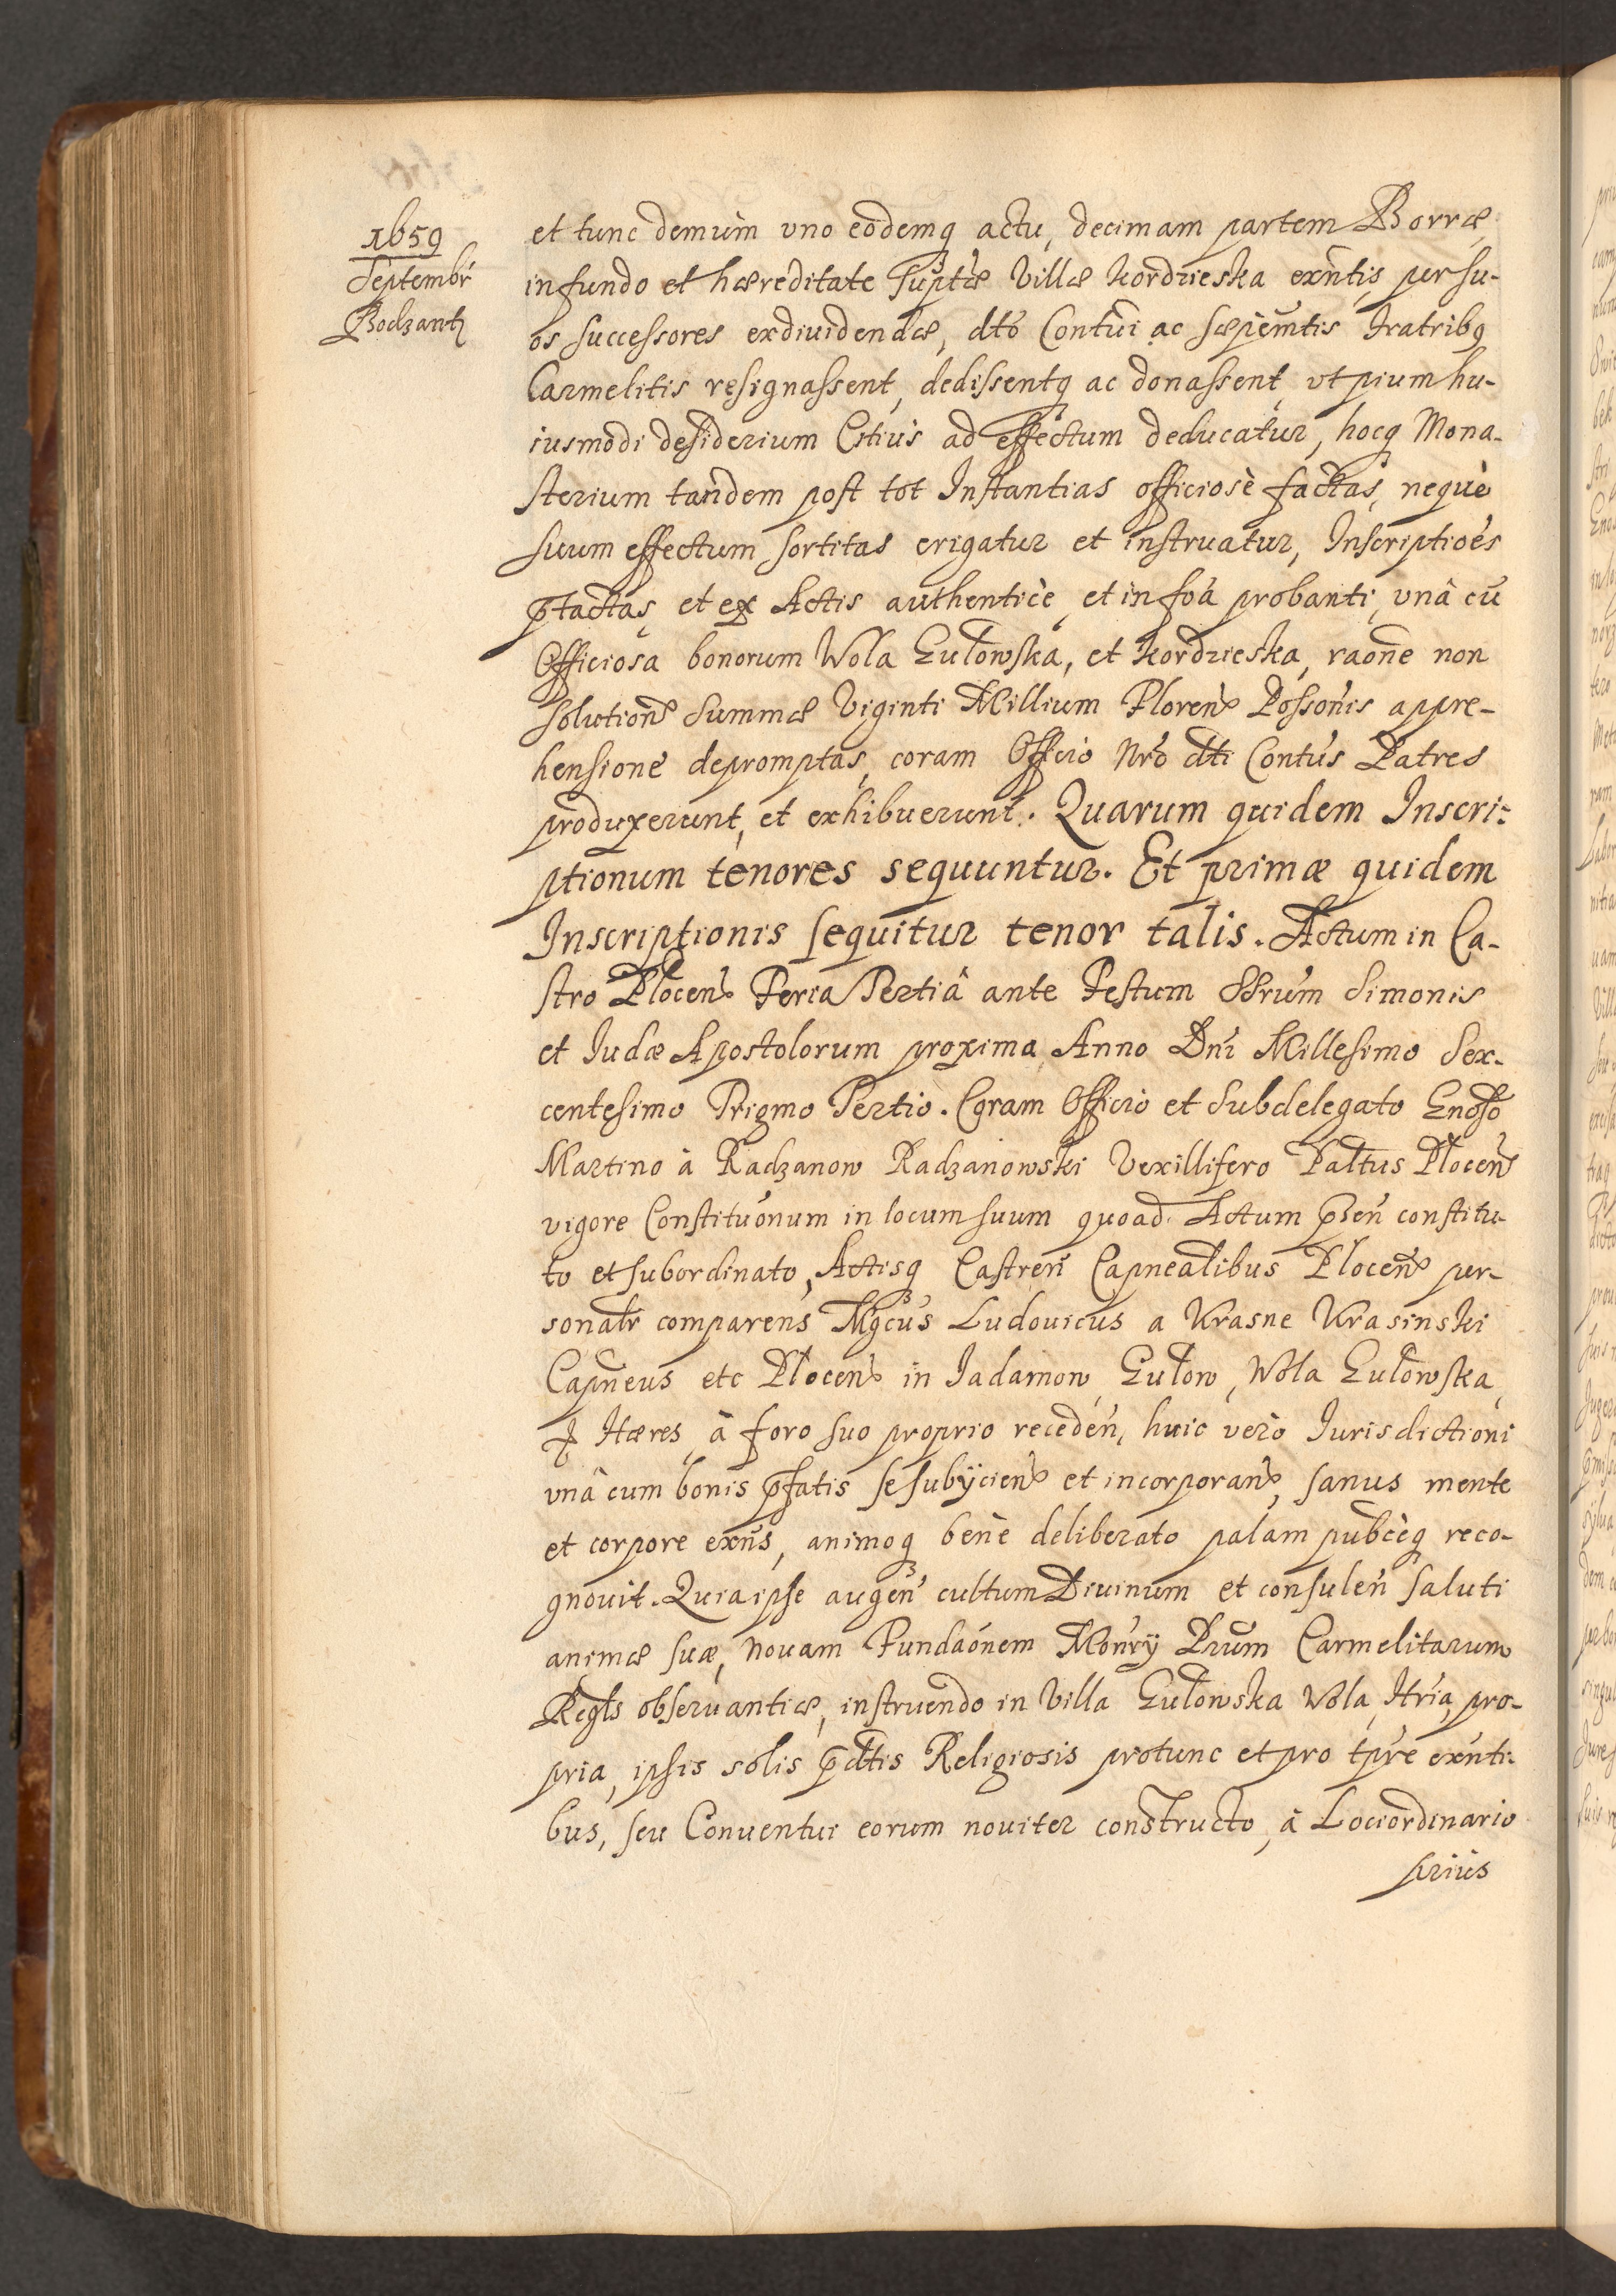 1659
Septembr
Bodzant
et tunc demùm vno eodemq actu, decimam partem Borræ
in fundo et hæreditate suptæ Villæ Kordzieska exntis, per su-
os successores exdiuidendæ, dto Contui ac sæpemtis Fratribq
Carmelitis resignassent, dedissentq ac donassent, vt pium hu-
iusmodi desiderium Citius ad effectum deducatur, hocq Mona-
sterium tandem post tot Instantias officiosè factas, nequè
suum effectum sortitas erigatur et instruatur, Inscriptioes
ptactas, et ex Actis authenticè, et in foa probanti, vnâ cu
Officiosa bonorum Wola Gułowska, et Kordzieska, raone non
solution Summæ Viginti Millium Floren Possonis appre-
hensione depromptas, coram Officio Nro dti Contus Patres
produxerunt, et exhibuerunt. Quarum quidem Inscri-
ptionum tenores sequuntur. Et primæ quidem
Inscriptionis sequitur tenor talis. Actum in Ca-
stro Plocen Feria Tertiâ ante Festum SSrum Simonis
et Iudæ Apostolorum proxima, Anno Dni Millesimo Sex-
centesimo Trigmo Tertio. Coram Officio et Subdelegato Gnoso
Martino à Radzanow Radzanowski Vexillifero Paltus Plocen
vigore Constituonum in locum suum quoad Actum psen constitu-
to et subordinato, Actisq Castren Capnealibus Plocen per-
sonalr comparens Mgcus Ludouicus a Krasne Krasinski
Capneus etc Plocen in Iadamow, Gułow, Wola Gułowska,
Hæres, à foro suo proprio receden, huic verò Iurisdictioni
vnâ cum bonis pfatis se subijcien et incorporan, sanus mente
et corpore exns, animoq benè deliberato palam pubcèq reco-
gnouit. Quia ipse augen cultum Diuinum et consulen saluti
animæ suæ, nouam Fundaonem Monry Prum Carmelitarum
Regls obseruantiæ, instruendo in Villa Gułowska Wola, Htria, pro-
pria, ipsis solis pdtis Religiosis protunc et pro tpre exnti-
bus, seu Conuentui eorum nouiter constructo, à Lociordinario
prius